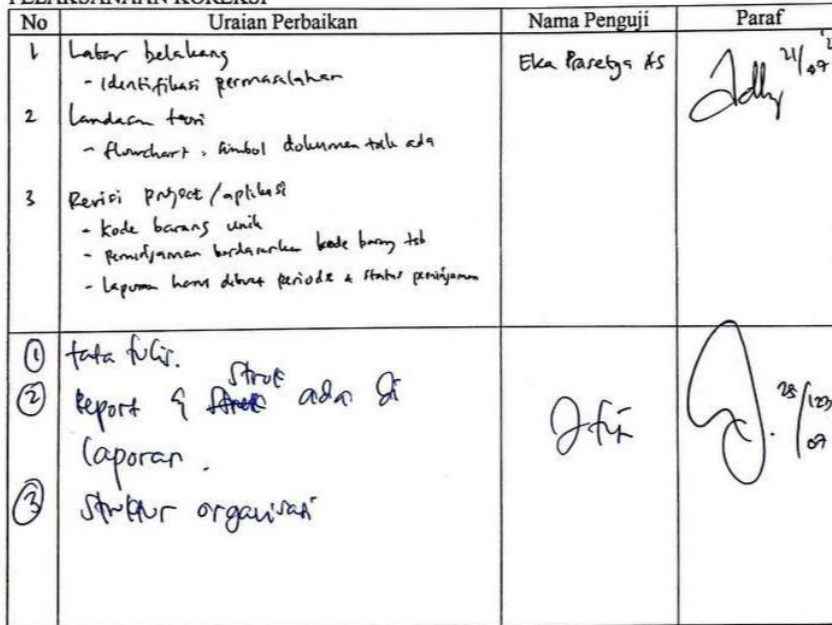 PELAKSANAAN KOREKSI
No Uraian Perbaikan Nama Penguji Paraf
1 Latar belakang Eka Prasetya AS 21/07
- Identifikasi permasalahan
2 Landasan teori
- flowchart, simbol dokumen tak ada
3 Revisi project/aplikasi
- kode barang unik
- peminjaman berdasarkan kode barang tsb
- Laporan harus dibuat periode & status peminjaman
① tata tulis.
② Report & Struk ada di
laporan.
③ Struktur organisasi